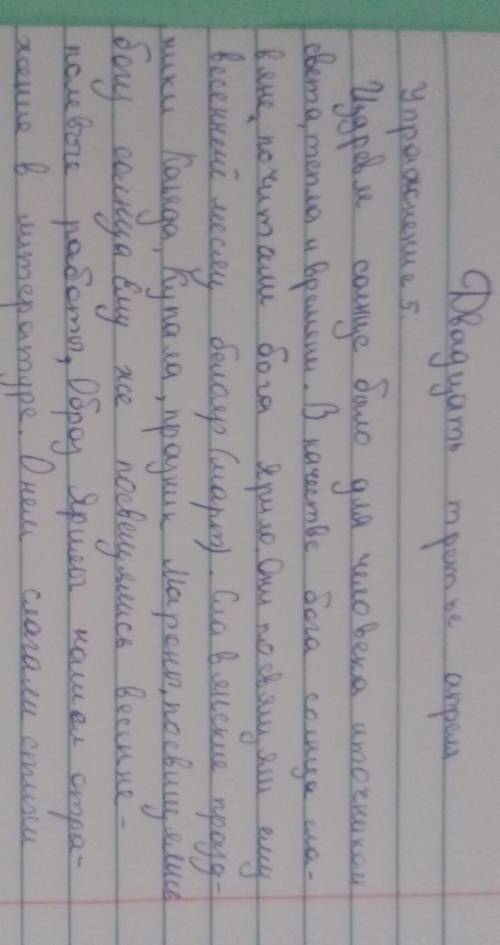 Двадцать третье апреля
Упражнение 5.
Издревле солнце было для человека источником
света, тепла и времени. В качестве бога солнца сла-
вяне, почитали бога Ярило. Они посвящали ему
весенний месяц белояр (март). Славянские празд-
ники Коляда, Купала, праздник Марены, посвящались
богу солнца Ему же посвещялись весенне-
полевые работы, Образ Ярилы нашел отра-
жение в литературе. О нем слагали стихи